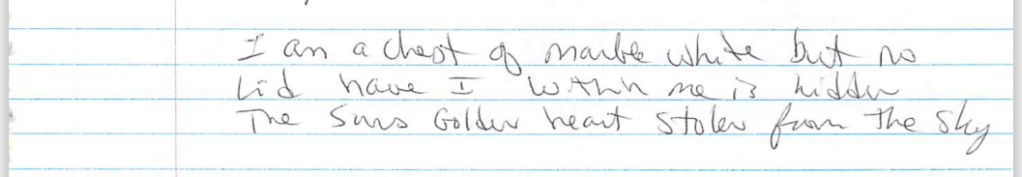 I am a chest of marble white but no
Lid have I within me is hidden
The Suns Golden heart stolen from the sky